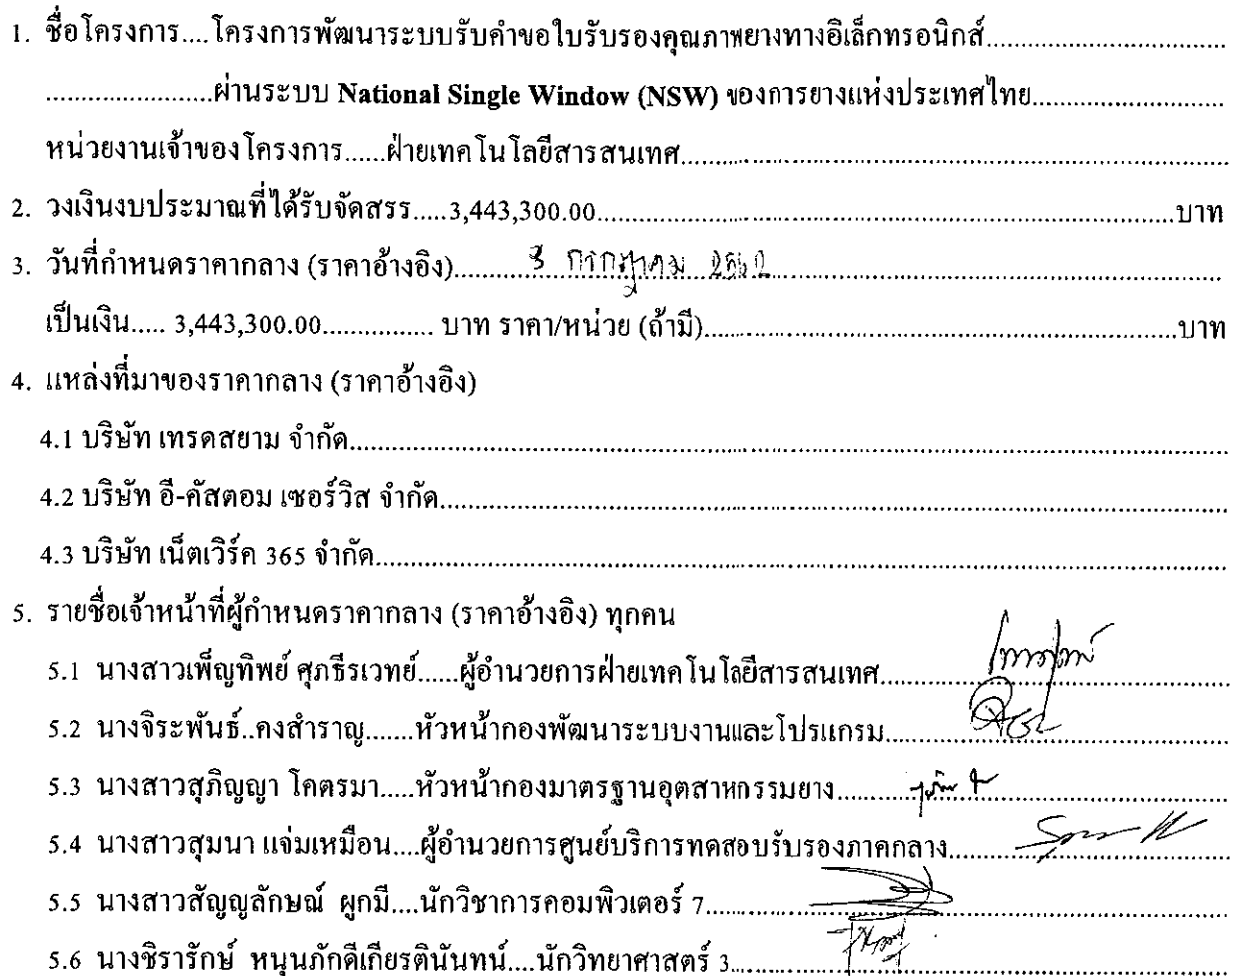 1. ชื่อโครงการ....โครงการพัฒนาระบบรับคำขอใบรับรองคุณภาพยางทางอิเล็กทรอนิกส์........................................
........................ผ่านระบบ National Single Window (NSW) ของการยางแห่งประเทศไทย............................
หน่วยงานเจ้าของโครงการ......ฝ่ายเทคโนโลยีสารสนเทศ................................................................................
2. วงเงินงบประมาณที่ได้รับจัดสรร.....3,443,300.00................................................................................บาท
3. วันที่กำหนดราคากลาง (ราคาอ้างอิง)..........3 กรกฎาคม 2562................................................................
เป็นเงิน..... 3,443,300.00............... บาท ราคา/หน่วย (ถ้ามี)................................................................บาท
4. แหล่งที่มาของราคากลาง (ราคาอ้างอิง)
4.1 บริษัท เทรดสยาม จำกัด................................................................................
4.2 บริษัท อี-คัสตอม เซอร์วิส จำกัด................................................................................
4.3 บริษัท เน็ตเวิร์ค 365 จำกัด................................................................................
5. รายชื่อเจ้าหน้าที่ผู้กำหนดราคากลาง (ราคาอ้างอิง) ทุกคน
5.1 นางสาวเพ็ญทิพย์ ศุภธีรเวทย์......ผู้อำนวยการฝ่ายเทคโนโลยีสารสนเทศ................................................
5.2 นางจิระพันธ์..คงสำราญ.......หัวหน้ากองพัฒนาระบบงานและโปรแกรม................................................
5.3 นางสาวสุภิญญา โคตรมา.....หัวหน้ากองมาตรฐานอุตสาหกรรมยาง................................................
5.4 นางสาวสุมนา แจ่มเหมือน....ผู้อำนวยการศูนย์บริการทดสอบรับรองภาคกลาง................................
5.5 นางสาวสัญญลักษณ์ ผูกมี....นักวิชาการคอมพิวเตอร์ 7................................................................
5.6 นางชิรารักษ์ หนุนภักดีเกียรตินันทน์....นักวิทยาศาสตร์ 3................................................................